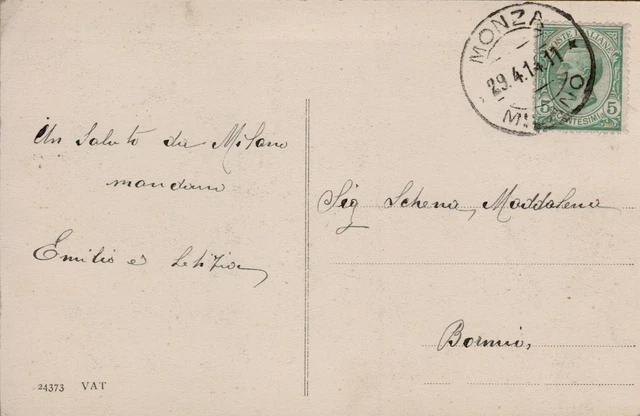 Un Saluto da Milano
mandano
Emilio e Letizia
24373 VAT
MONZA
29.4.14.11
MILANO
POSTE ITALIANE
5 CENTESIMI 5
Sig Schena Maddalena
Bormio,